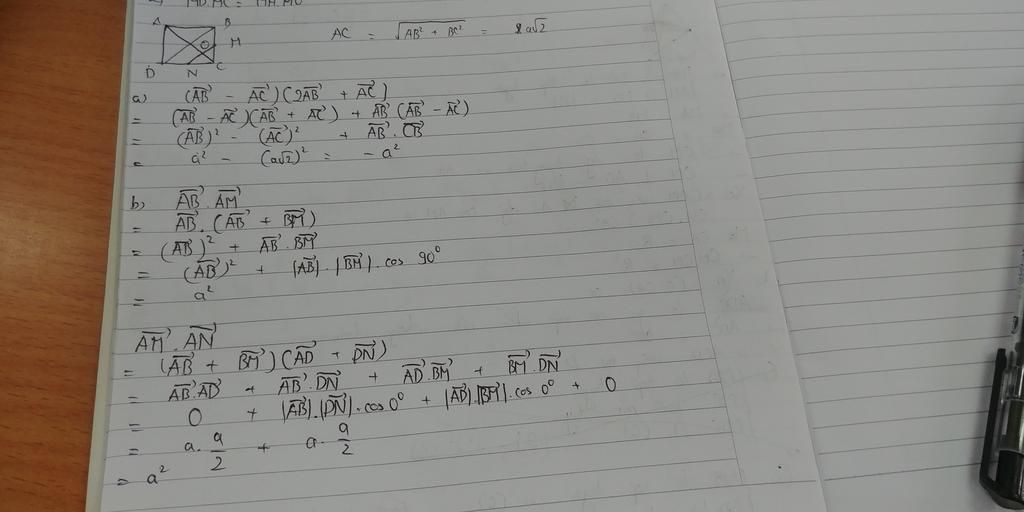 MD.MC = MA.MO
A B
O M
D N C
AC = √(AB² + BC²) = a√2
a) (AB⃗ - AC⃗)(2AB⃗ + AC⃗)
= (AB⃗ - AC⃗)(AB⃗ + AC⃗) + AB⃗(AB⃗ - AC⃗)
= (AB⃗)² - (AC⃗)² + AB⃗.CB⃗
= a² - (a√2)² = -a²
b) AB⃗.AM⃗
= AB⃗.(AB⃗ + BM⃗)
= (AB⃗)² + AB⃗.BM⃗
= (AB⃗)² + |AB⃗|.|BM⃗|.cos 90°
= a²
AM⃗.AN⃗
= (AB⃗ + BM⃗)(AD⃗ + DN⃗)
= AB⃗.AD⃗ + AB⃗.DN⃗ + AD⃗.BM⃗ + BM⃗.DN⃗
= 0 + |AB⃗|.|DN⃗|.cos 0° + |AD⃗|.|BM⃗|.cos 0° + 0
= a.a/2 + a.a/2
= a²